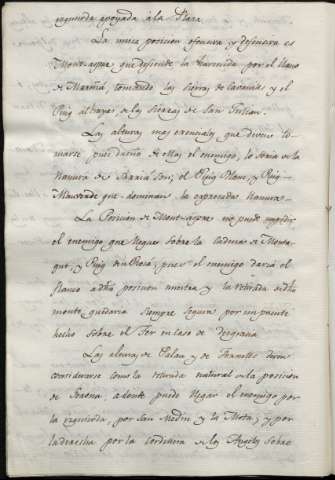 izquierda apoyada á la Plaza.
La unica posicion ofensiva y defensiva es
Mont-aspre que defiende la avenida por el llano
de Mariña, tomando las sierras de Casavells y el
Puig altrayas de las Sierras de San Julian.
Las alturas mas esenciales que deven to-
marse pues daria de ellas el enemigo, lo seria de la
llanura de Sarria son, el Puig Blanc, y Puig-
que dominan la expresada llanura.
La Posicion de Mont-aspre no puede impedir
el enemigo que llegue sobre la ladera de Monta-
gut, y Puig d'en Rocá; pues el enemigo daria el
flanco a dha posicion nuestra y la retirada de dho
monte quedaria siempre segura por un puente
hecho sobre el Ter en caso de desgracia.
Las alturas de Palau y de Fornells deven
considerarse como la retirada natural de la posicion
de Gerona, a donde puede llegar el enemigo por
la izquierda, por San Medir y la Mota; y por
la derecha por la cordillera de los Angeles sobre